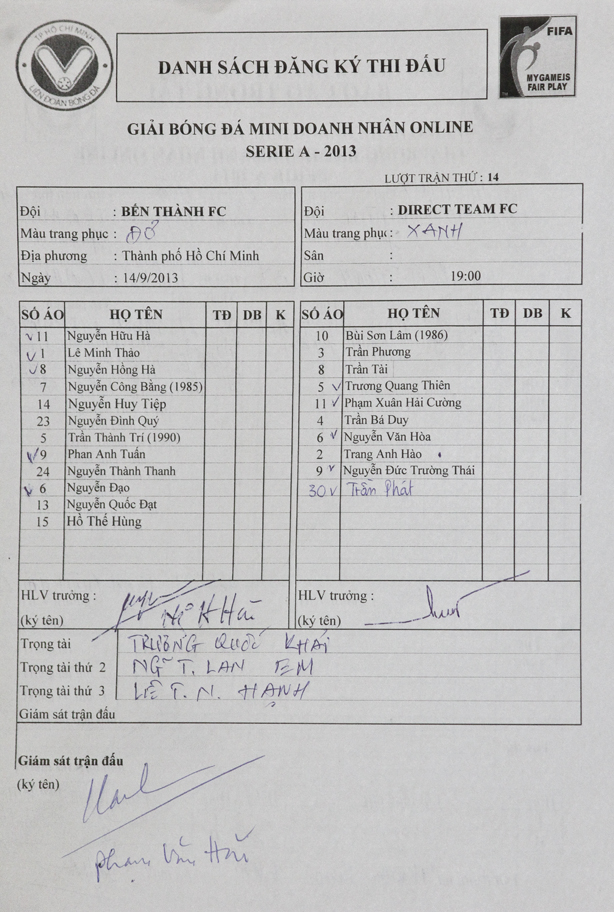 TP HỒ CHÍ MINH
LIÊN ĐOÀN BÓNG ĐÁ
DANH SÁCH ĐĂNG KÝ THI ĐẤU
FIFA
MYGAMEIS
FAIR PLAY
GIẢI BÓNG ĐÁ MINI DOANH NHÂN ONLINE
SERIE A - 2013
LƯỢT TRẬN THỨ : 14
Đội : BẾN THÀNH FC
Màu trang phục : ĐỎ
Địa phương : Thành phố Hồ Chí Minh
Ngày : 14/9/2013
Đội : DIRECT TEAM FC
Màu trang phục : XANH
Sân :
Giờ 19:00
SỐ ÁO HỌ TÊN TĐ DB K
11 Nguyễn Hữu Hà
1 Lê Minh Thảo
8 Nguyễn Hồng Hà
7 Nguyễn Công Bằng (1985)
14 Nguyễn Huy Tiệp
23 Nguyễn Đình Quý
5 Trần Thành Trí (1990)
9 Phan Anh Tuấn
24 Nguyễn Thành Thanh
6 Nguyễn Đạo
13 Nguyễn Quốc Đạt
15 Hồ Thế Hùng
SỐ ÁO HỌ TÊN TĐ DB K
10 Bùi Sơn Lâm (1986)
3 Trần Phương
8 Trần Tài
5 Trương Quang Thiên
11 Phạm Xuân Hải Cường
4 Trần Bá Duy
6 Nguyễn Văn Hòa
2 Trang Anh Hào
9 Nguyễn Đức Trường Thái
30 Trần Phát
HLV trưởng :
(ký tên)
HLV trưởng :
(ký tên)
Trọng tài TRƯƠNG QUỐC KHẢI
Trọng tài thứ 2 NGÔ T. LAN EM
Trọng tài thứ 3 LÊ T. N. HẠNH
Giám sát trận đấu
Giám sát trận đấu
(ký tên)
phạm Văn